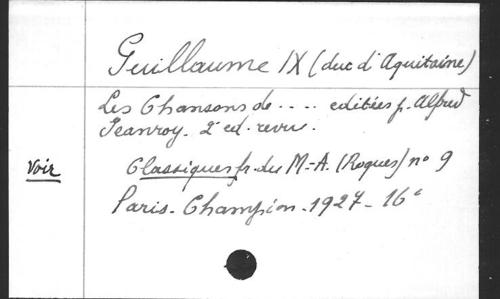 Guillaume IX (duc d'Aquitaine)
Les Chansons de .... editées p. Alfred
Jeanroy. 2e ed. revu.
Voir
Classiques fr. du M.-A. (Roques) no 9
Paris - Champion - 1927 - 16°